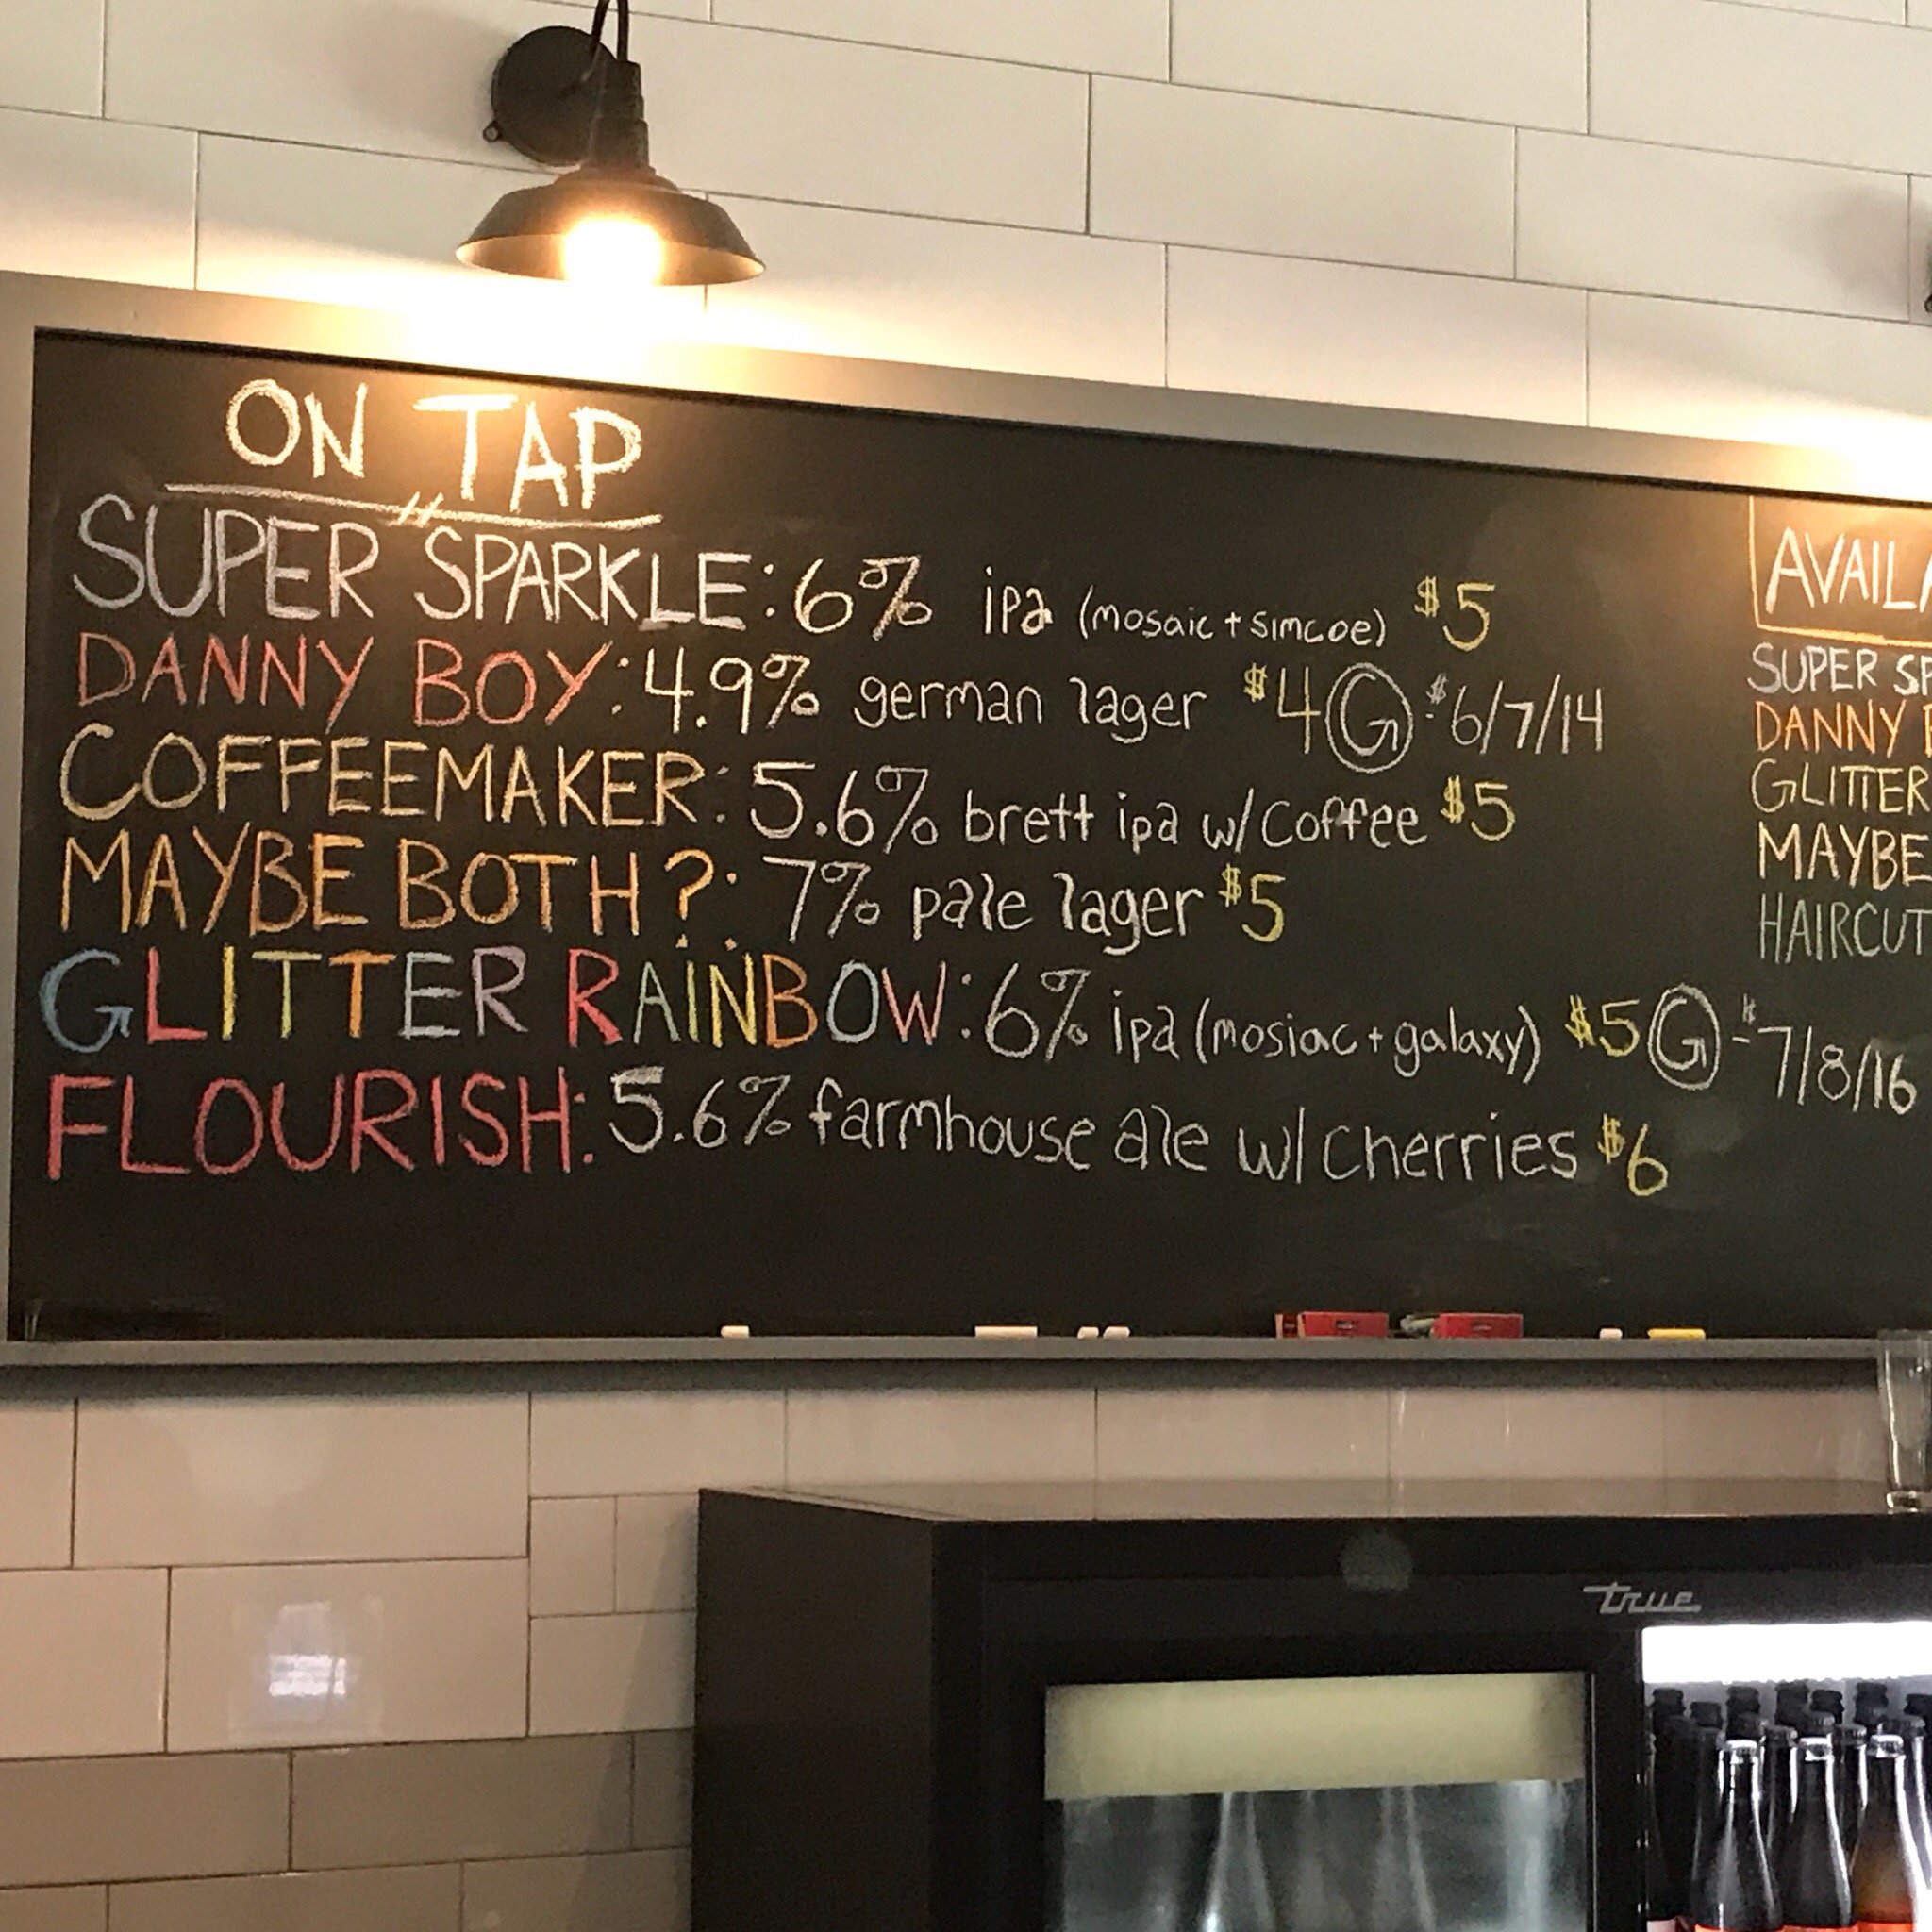 ON TAP
SUPER SPARKLE: 6% ipa (mosaic + simcoe) $5
DANNY BOY: 4.9% german lager $4 G - $6/7/14
COFFEEMAKER: 5.6% brett ipa w/ coffee $5
MAYBE BOTH?: 7% pale lager $5
GLITTER RAINBOW: 6% ipa (mosiac + galaxy) $5 G - $7/8/16
FLOURISH: 5.6% farmhouse ale w/ cherries $6
AVAILA
SUPER SP
DANNY
GLITTER
MAYBE
HAIRCUT
true